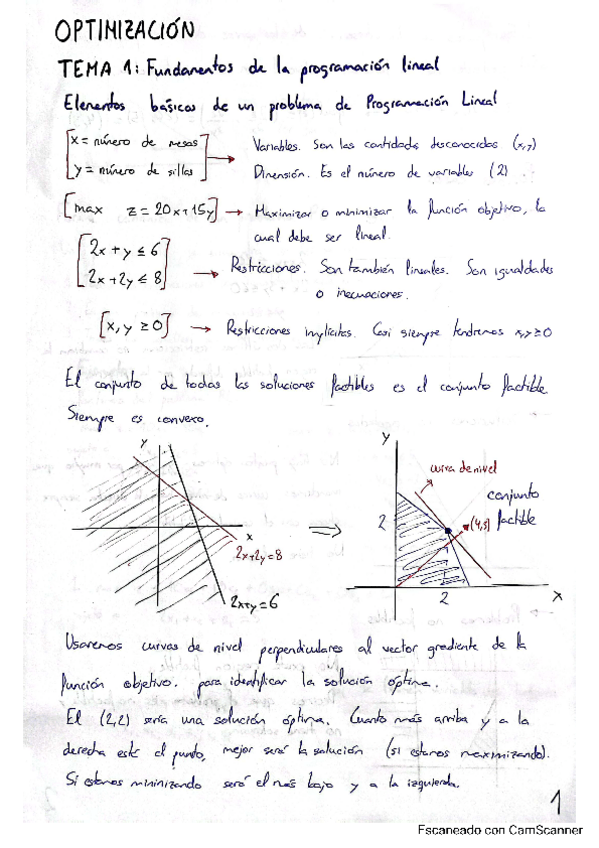 OPTIMIZACIÓN
TEMA 1: Fundamentos de la programación lineal
Elementos básicos de un problema de Programación Lineal
x = número de mesas
y = número de sillas
Variables. Son las cantidades desconocidas (x,y)
Dimensión. Es el número de variables (2).
[max z = 20x+15y] → Maximizar o minimizar la función objetivo, la
cual debe ser lineal.
2x + y ≤ 6
2x + 2y ≤ 8
→ Restricciones. Son también lineales. Son igualdades
o inecuaciones.
[x, y ≥ 0] → Restricciones implícitas. Casi siempre tendremos x,y≥0
El conjunto de todas las soluciones factibles es el conjunto factible.
Siempre es convexo.
y
x
2x+2y=8
2x+y=6
⇒
y
curva de nivel
conjunto
factible
2
(4,3)
2
x
Usaremos curvas de nivel perpendiculares al vector gradiente de la
función objetivo. para identificar la solución óptima.
El (2,2) sería una solución óptima. Cuanto más arriba y a la
derecha esté el punto, mejor será la solución (si estamos maximizando).
Si estamos minimizando será el más bajo y a la izquierda.
1
Escaneado con CamScanner